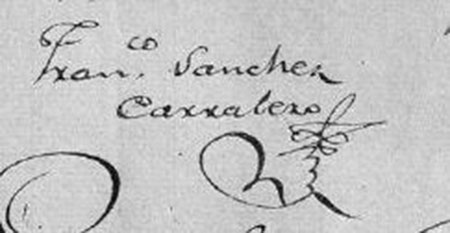 Fran.co Sanchez
Carralero